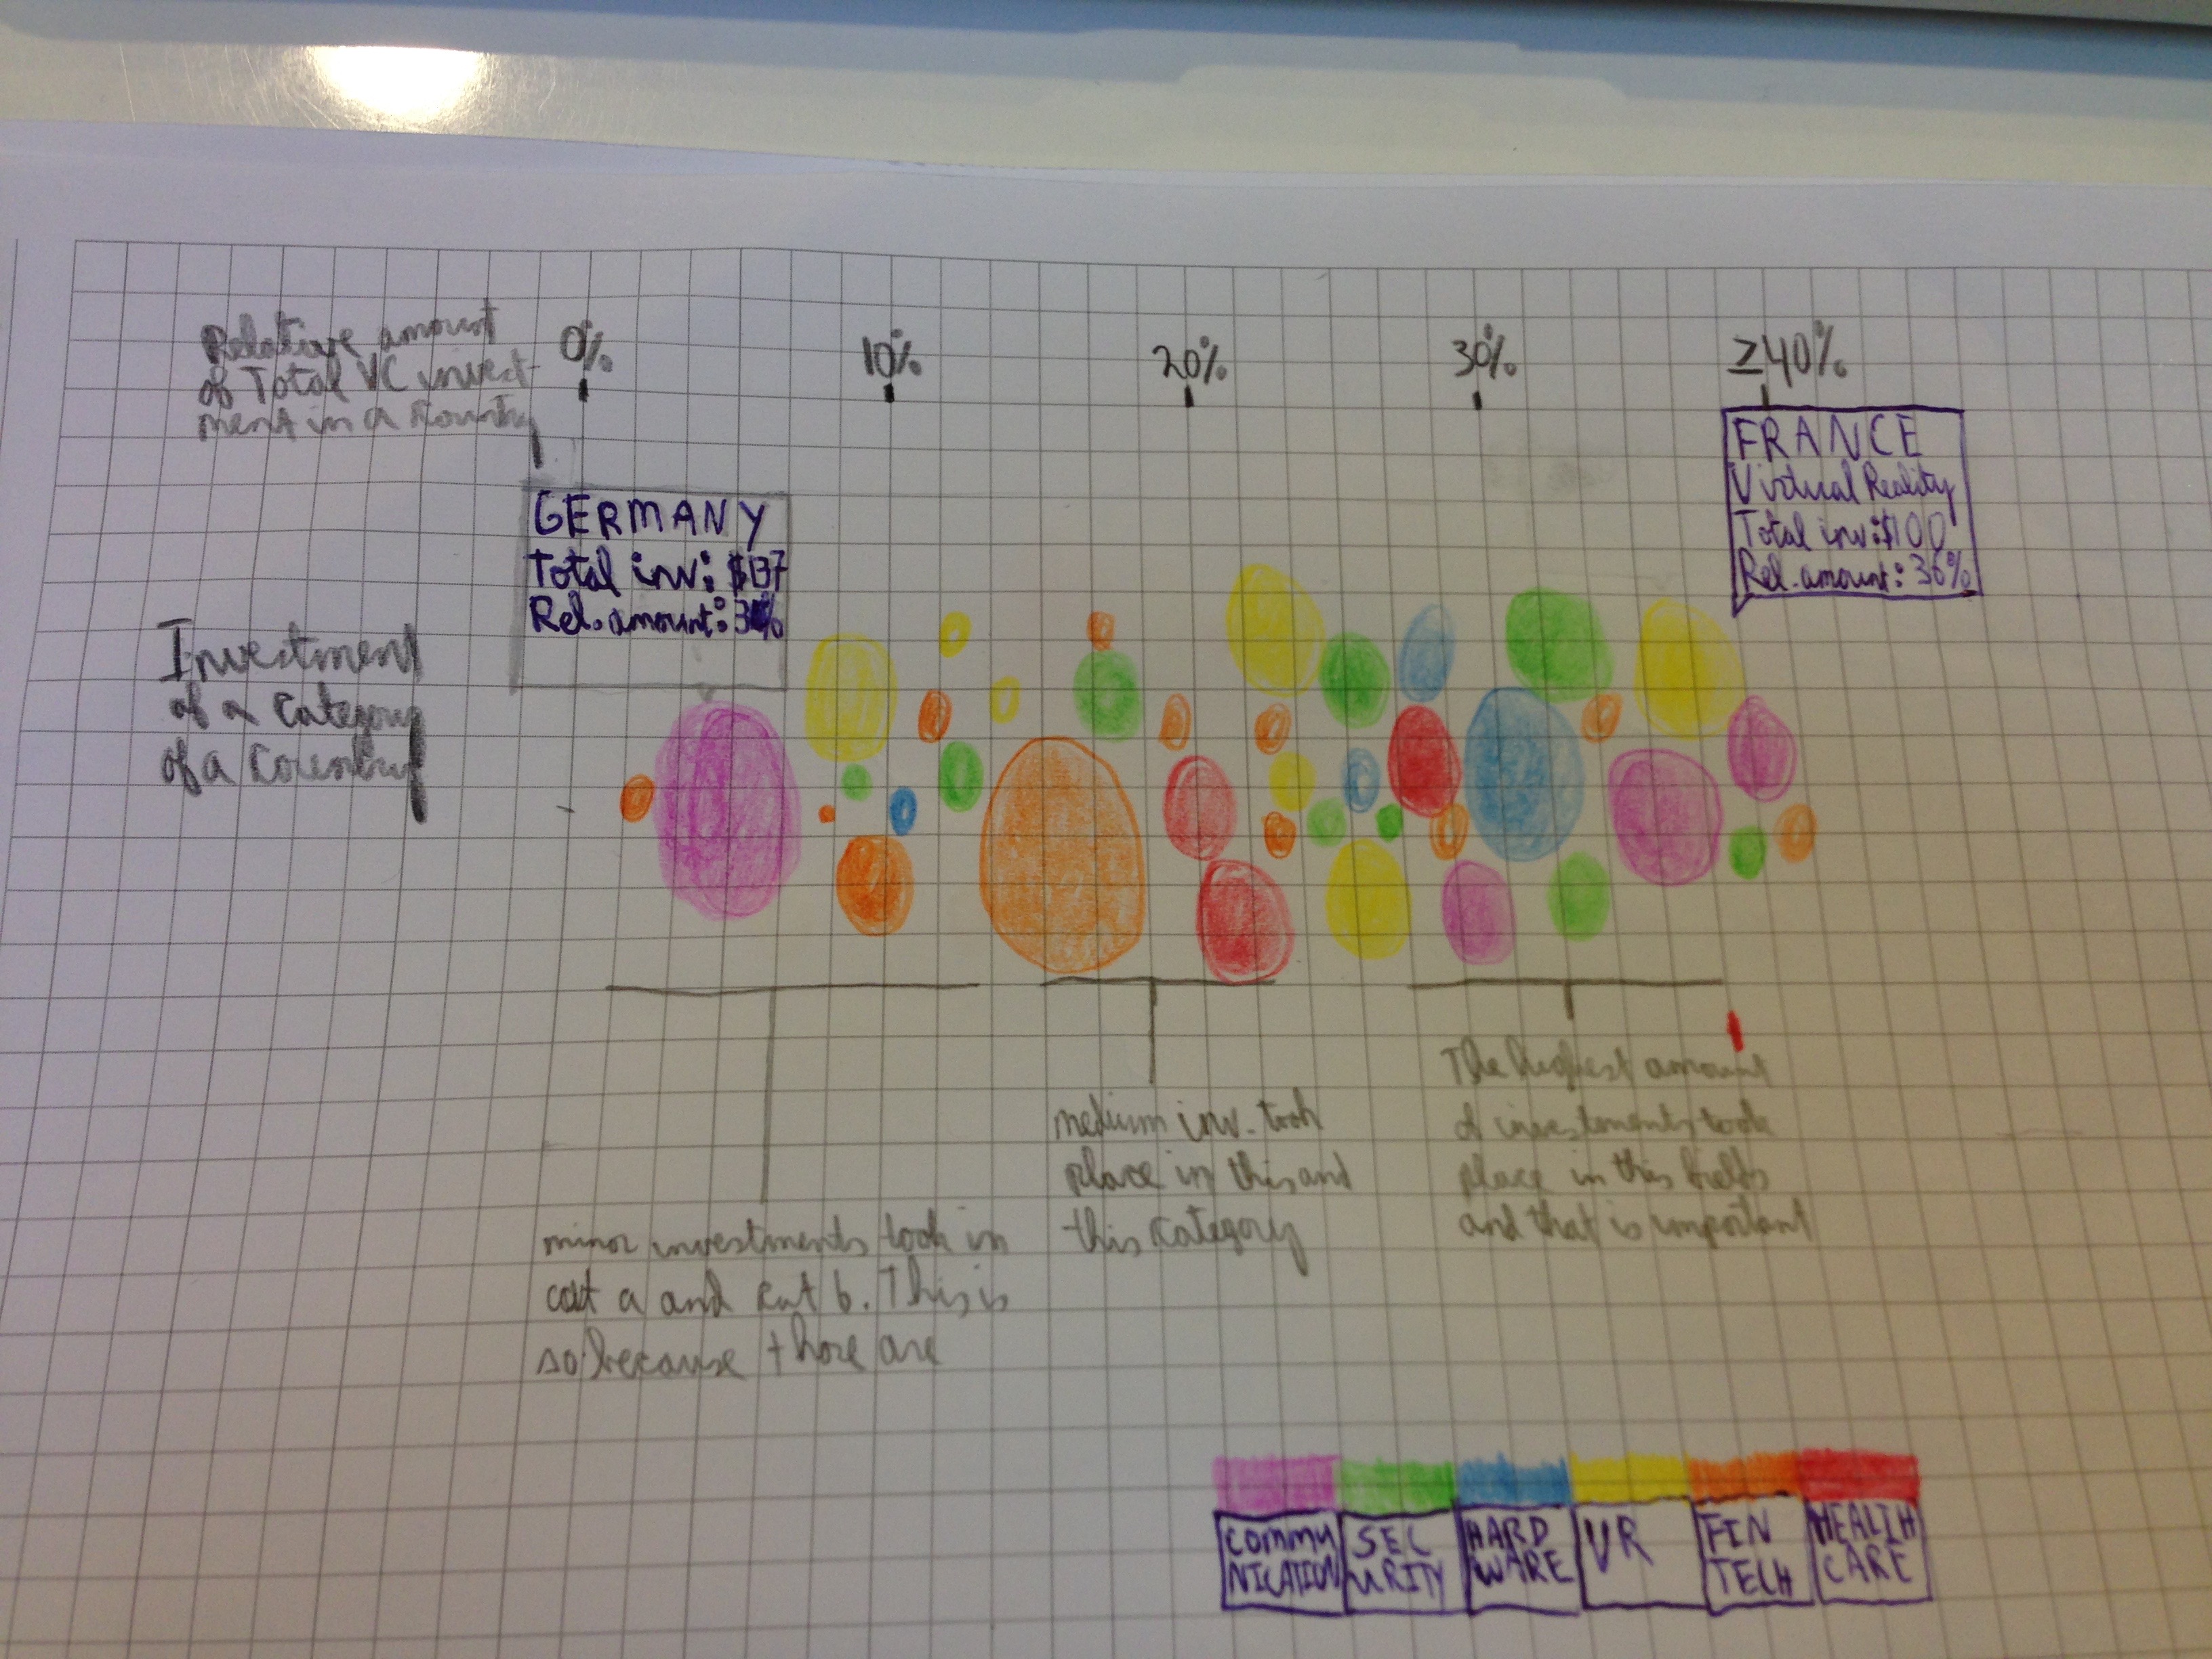 Relative amount
of Total VC invest-
ment in a Country
0%
10%
20%
30%
≥40%
GERMANY
Total inv: $137
Rel. amount:
FRANCE
Virtual Reality
Total inv:$100
Rel. amount: 36%
Investment
of a Category
of a Country
minor investments took in
cat a and cat b. This is
so because those are
medium inv. took
place in this and
this category
The highest amount
of investments took
place in this fields
and that is important
COMMU
NICATION
SEC
URITY
HARD
WARE
VR
FIN
TECH
HEALTH
CARE